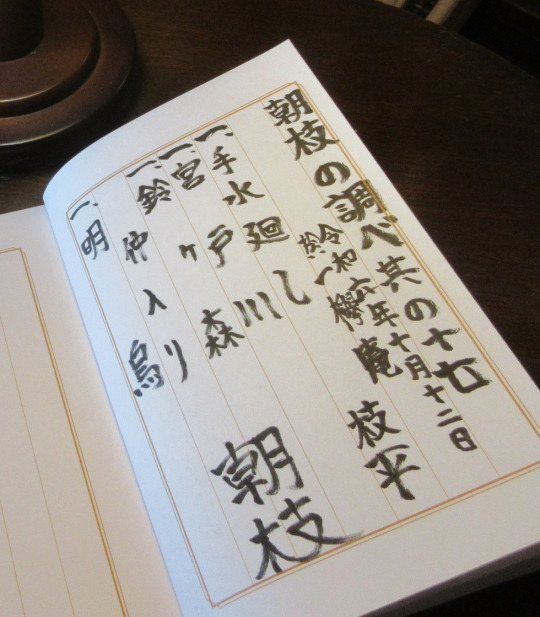 朝枝の調べ其の十七
令和六年十月十二日
於 一欅庵
一、手水廻し 枝平
一、宮戸川
一、鈴ヶ森
仲入り
一、明烏
朝枝